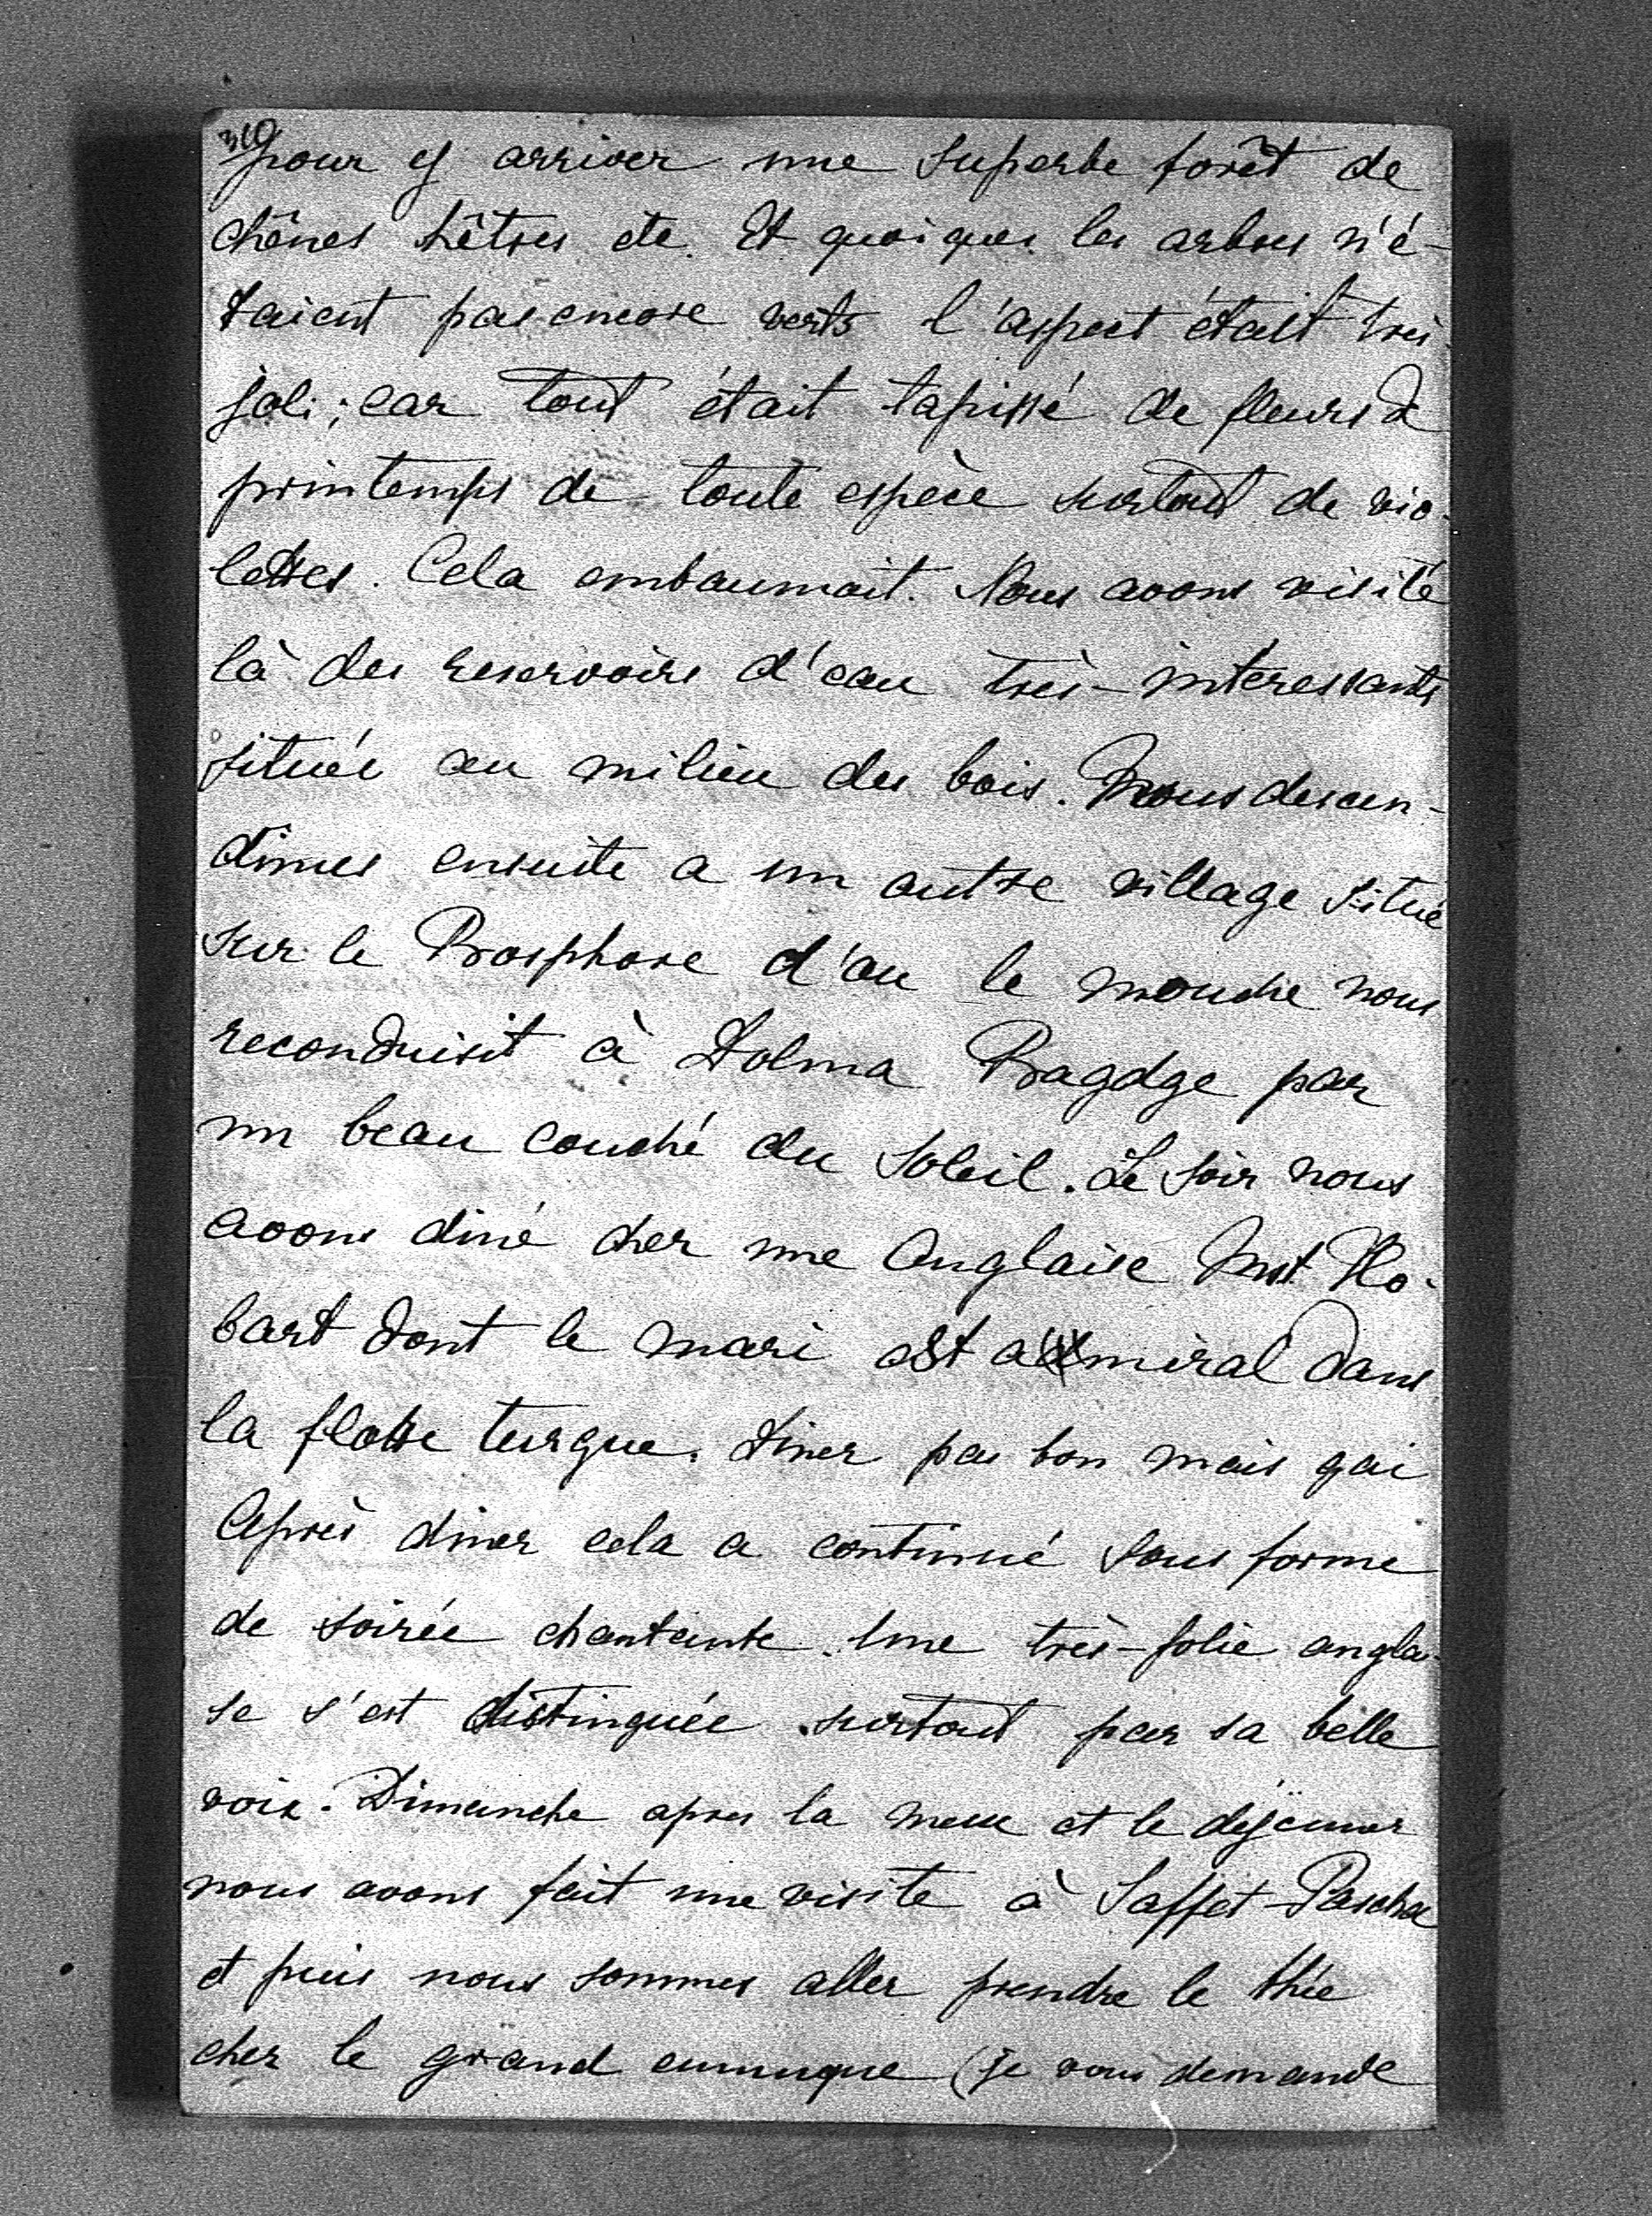 310
pour y arriver une superbe forêt de
chênes hêtres etc. Et quoique les arbres n'é-
taient pas encore verts l'aspect était très
joli; car tout était tapissé de fleurs d
printemps de toute espèce surtout de vio-
lettes. Cela embaumait. Nous avons visité
là des reservoirs d'eau très-interessants
situés au milieu des bois. Nous descen-
dimes ensuite a un autre village situé
sur le Bosphore d'ou le mouche nous
reconduisit à Dolma Bagdge par
un beau couché du soleil. Le soir nous
avons diné chez une Anglaise Mst. Ho-
bart dont le mari est admiral dans
la flotte turque. Diner pas bon mais gai
Après diner cela a continué sous forme
de soirée chantante. Une très-jolie anglai-
se s'est distinguée surtout par sa belle
voix. Dimanche apres la messe et le dejeuner
nous avons fait une visite à Saffet-Pascha
et puis nous sommes aller prendre le thée
chez le grand eunuque (je vous demande